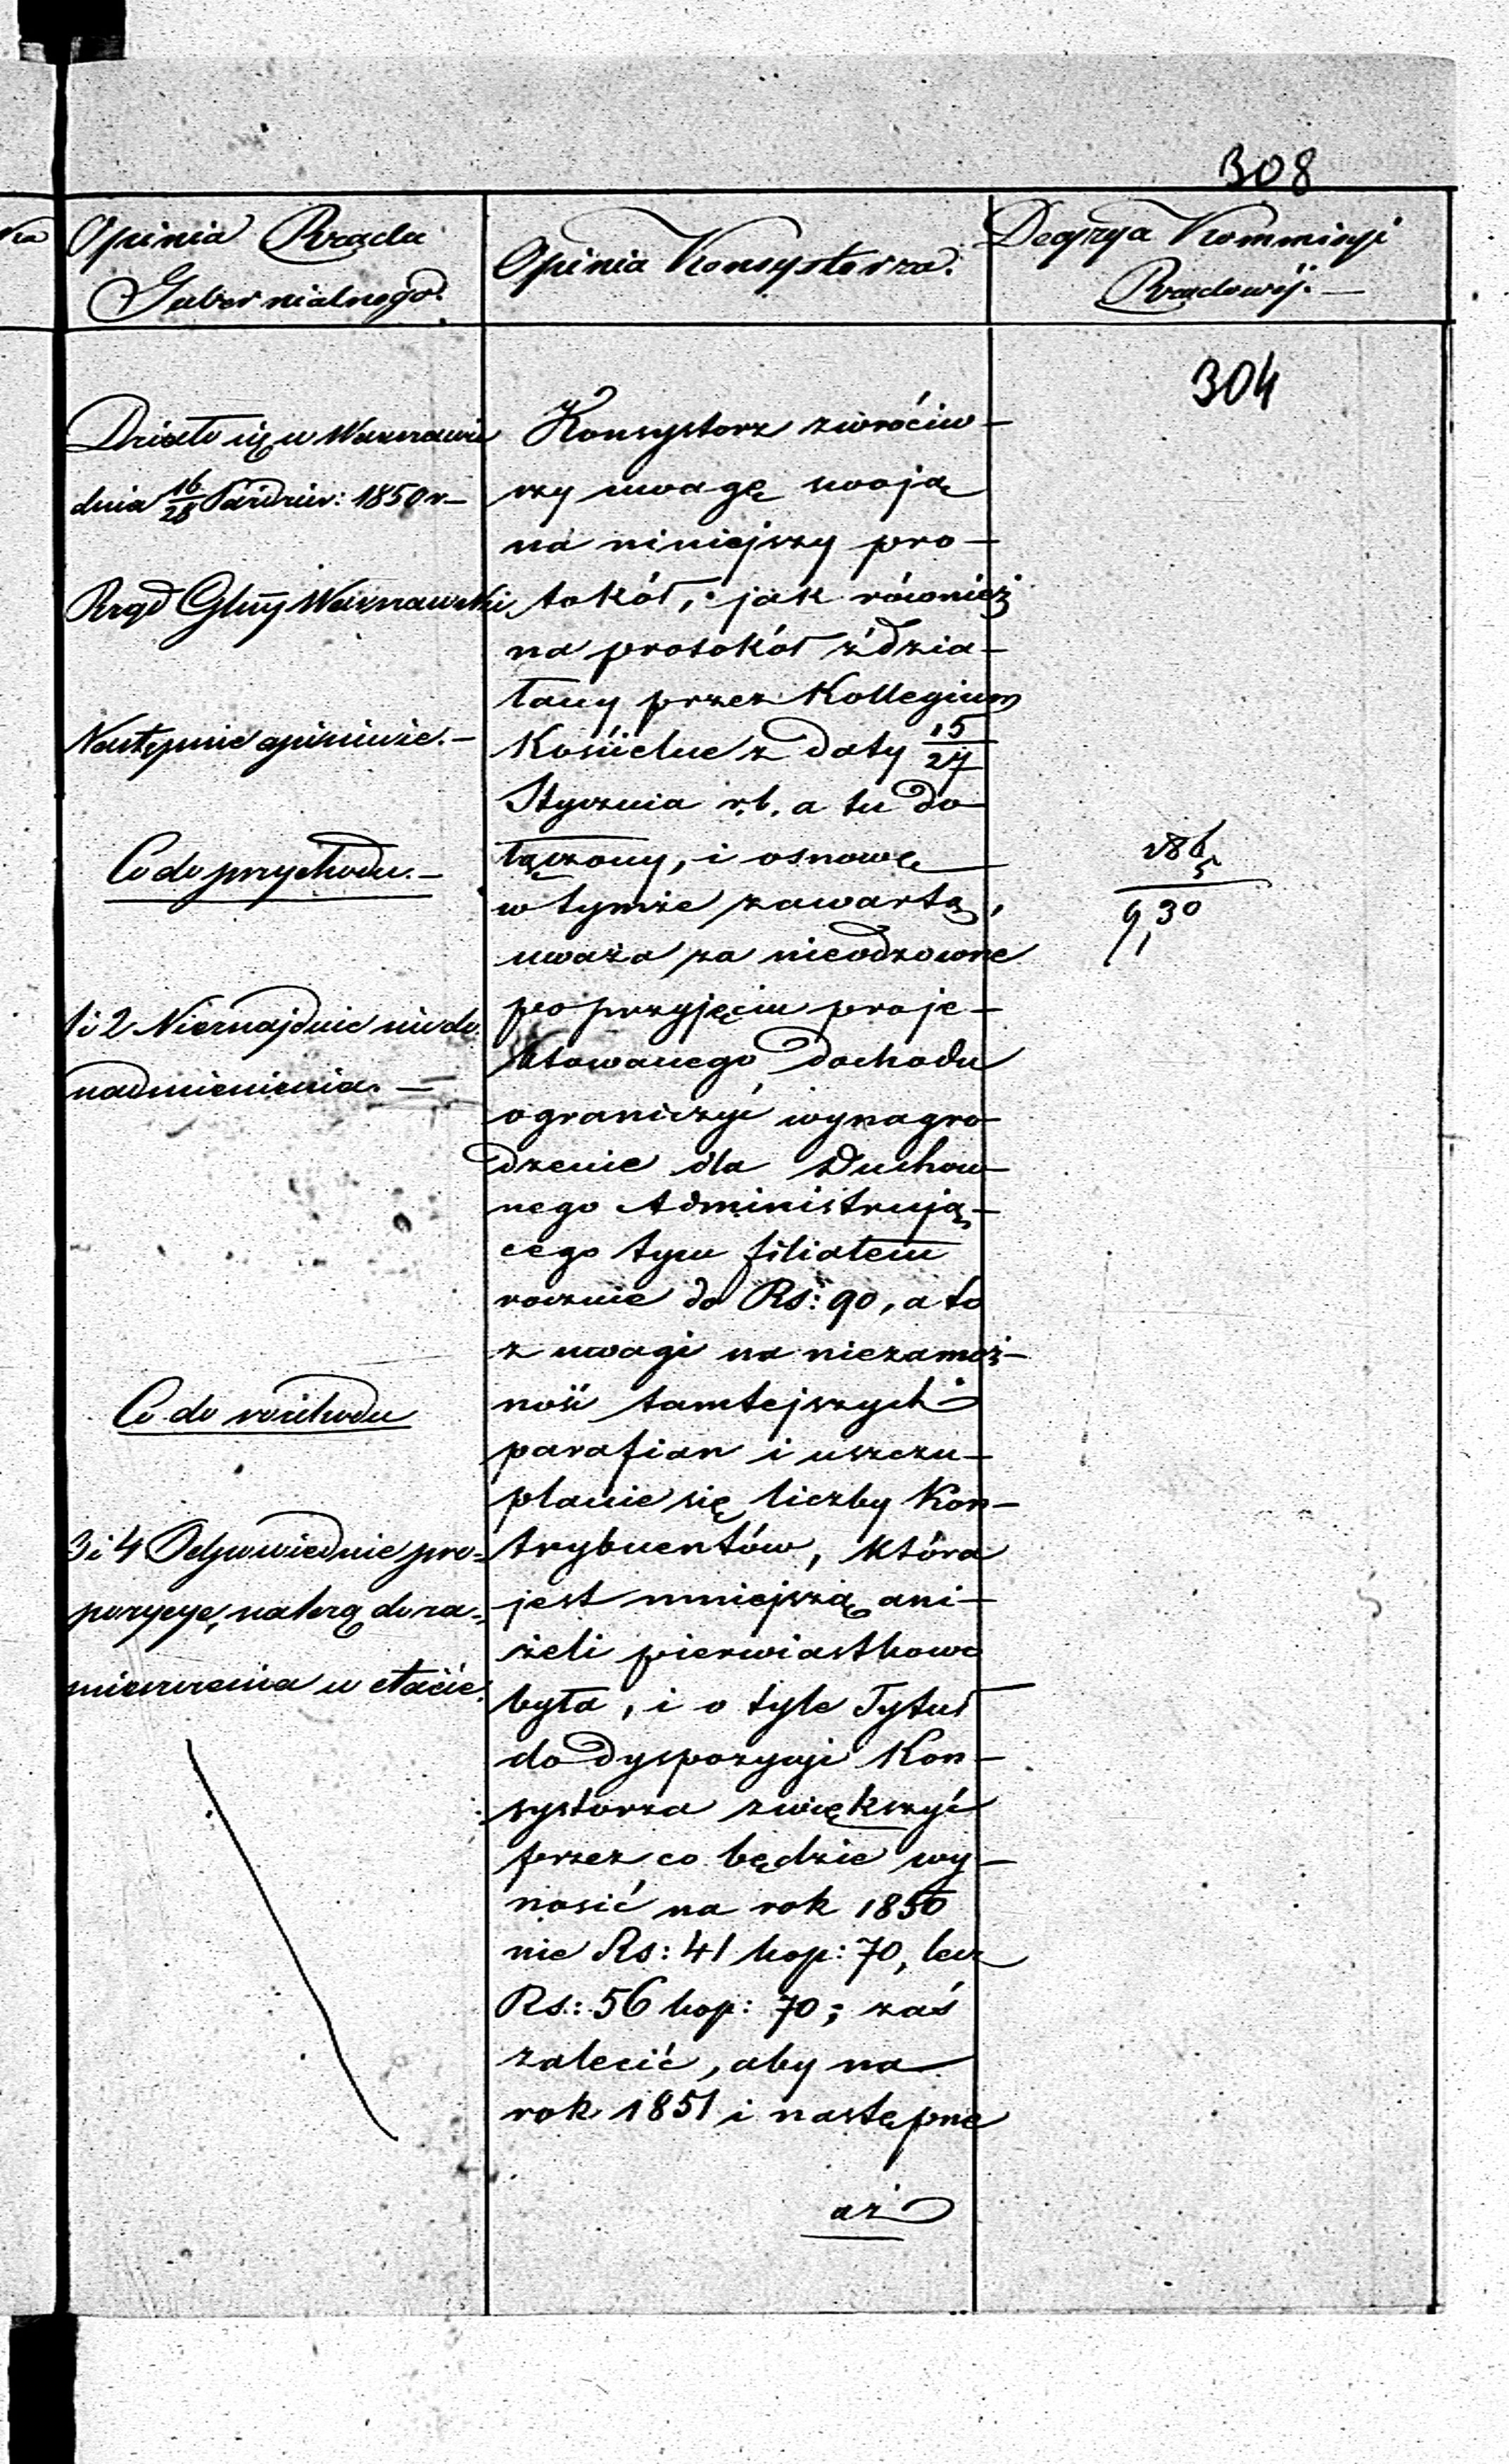 308
Opinia Rządu
Gubernialnego.
Opinia Konsystorza.
Decyzya Kommissyi
Rządowéj. —
304
Działo się w Warszawie
dnia 16/28 Paździer: 1850 r —
Rząd Glny Warszawski
Następnie opiniuie. —
Co do przychodu. —
1 i 2 Nieznajduie nic do
nadmienienia. —
Co do rozchodu
3 i 4 Odpowiednie pro-
pozycye, należą do za-
mieszczenia w etacie.
Konsystorz zwróciw-
szy uwagę swoją
na niniejszy pro-
tokół, jak również
na protokół zdzia-
łany przez Kollegium
Kościelne z daty 15/27
Stycznia r.b. a tu do
łączony, i osnowę
w tymże zawartą,
uważa za nieodzowne
po przyjęciu proje-
ktowanego dochodu
ograniczyć wynagro-
dzenie dla Duchow-
nego Administrują-
cego tym filiałem
rocznie do Rs: 90, a to
z uwagi na niezamoż-
ność tamtejszych
parafian i uszczu-
planie się liczby Kon-
trybuentów, która
jest mniejszą ani-
żeli pierwiastkowo
była, i o tyle Tytuł
do dyspozycji Kon-
systorza zwiększyć
przez co będzie wy-
nosić na rok 1850
nie Rs: 41 kop: 70, lecz
Rs: 56 kop: 70; zaś
zalecić, aby na
rok 1851 i następne
aż
9,30